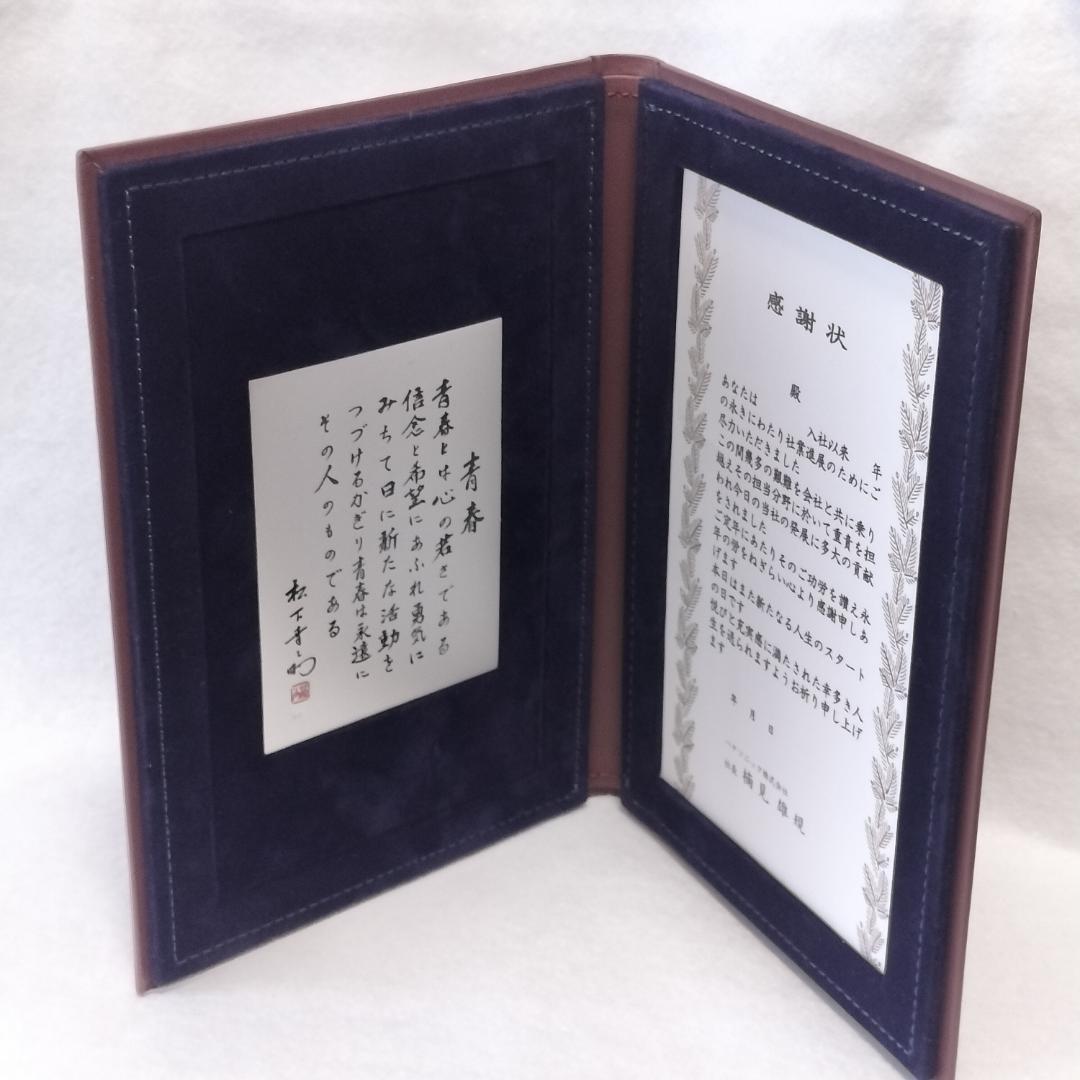 青春
青春とは心の若さである
信念と希望にあふれ勇気に
みちて日に新たな活動を
つづけるかぎり青春は永遠に
その人のものである
松下幸之助
感謝状
殿
あなたは 入社以来 年
の永きにわたり社業進展のためにご
尽力いただきました
この間幾多の艱難を会社と共に乗り
越えその担当分野に於いて重責を担
われ今日の当社の発展に多大の貢献
をされました
ご定年にあたりそのご功労を讃え永
年の労をねぎらい心より感謝申しあ
げます
本日はまた新たなる人生のスタート
の日です
悦びと充実感に満たされた幸多き人
生を送られますようお祈り申し上げ
ます
年 月 日
パナソニック株式会社
社長 楠見雄規